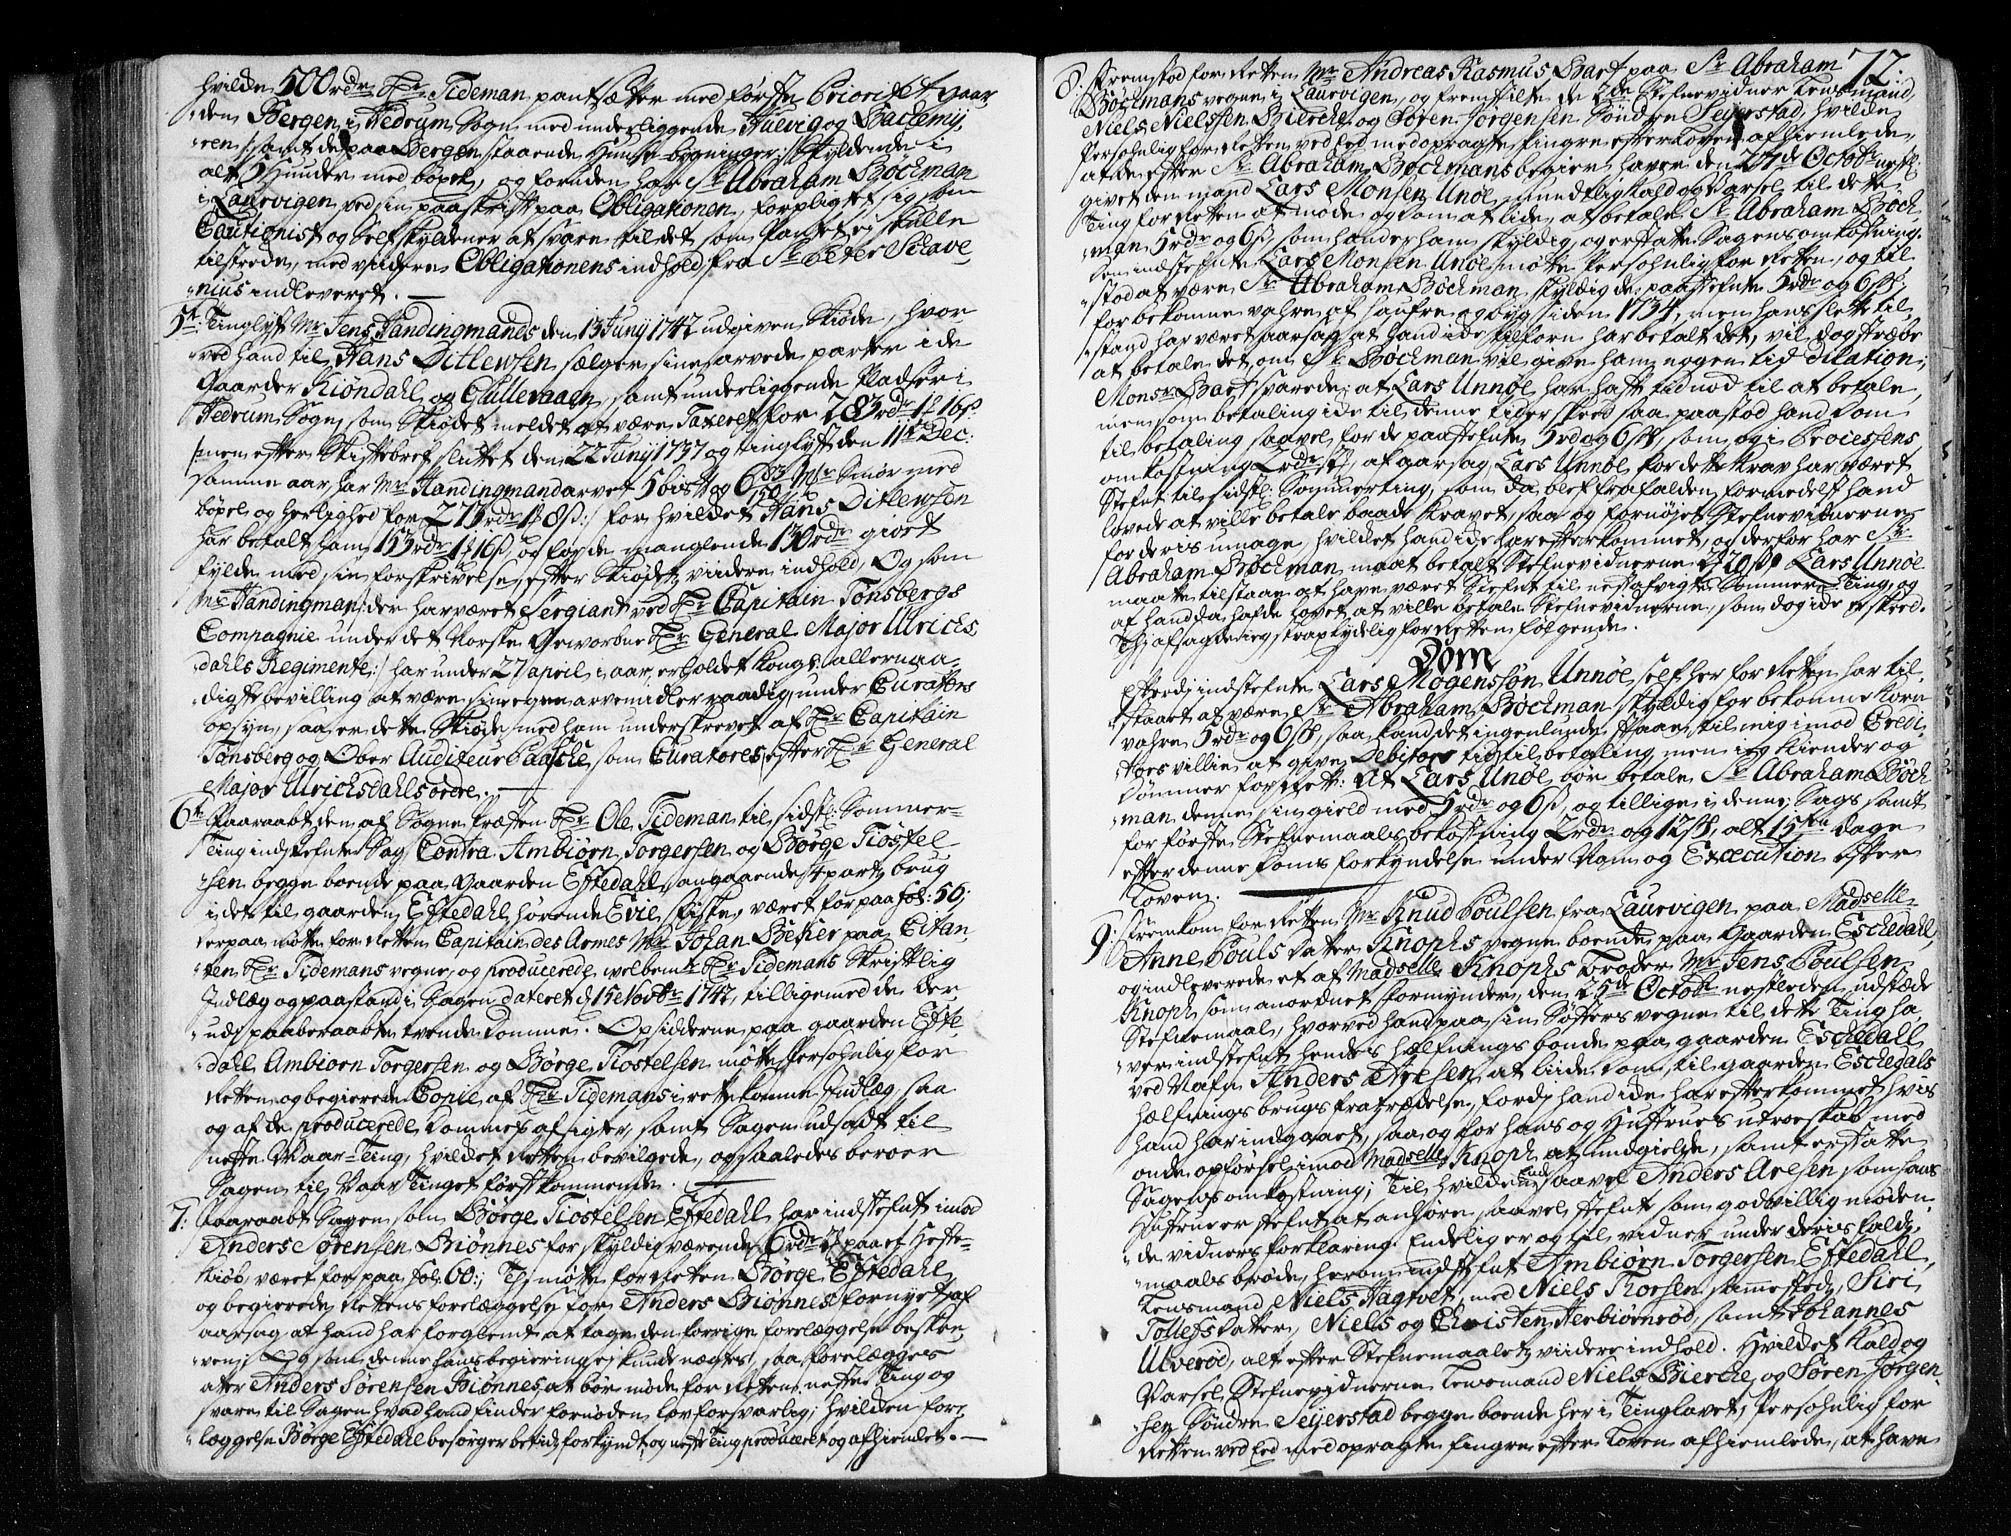 hvilde 500 rdr Hr Tideman pantsetter med første Prioritet gaar
den Bergen i Hedrum Sogn med underliggende Hulevig og Backemy
ren /: samt de paa Bergen staaende Huuse bygninger :/ skyldende i
alt 5 Hunder med bøxel, og foruden har Sr Abraham Böckman
i Laurvigen ved sin paaskrift paa Obligationen, forpligtet sig som
Cautionist og Self skyldener at svare til det som Pantet ej skulle
tilstrede, med viidere Obligationens indhold, fra Sr Peter Schave
nius indleveret.
5te Tinglyst Mr Jens Handingmands den 13 Juny 1742 udgiven Skiøde, hvor
ved hand til Hans Ditlewsen sælger sine arvede parter i de
Gaarder Kiöndahl og Gulleraaen samt underliggende Pladser i
Hedrum Sogn, som Skiødet melder at være Taxeret for 283 rdr 1 f 16 s
/: men efter Skiftebref sluttet den 22 Juny 1737 og tinglyst den 11te Dec:
samme aar har Mr Handingmand arvet 5 bost og 6 Smør med
bøxel og herlighed for 273 rdr 1 f 8 s :/ for hvilket Hans Ditlewsen
har betalt ham 153 rdr 1 f 16 s, og for de manglende 130 rdr giort
fylde med sin forskrivelse, efter Skiødets viidere indhold, Og som
Mr Handingman /: der har været Sergiant ved Hr Capitain Tonsbergs
Compagnie under det Norske Geworbne Hr General Major Ulrichs
dahls Regimente :/ har under 27 april i aar, erholdet Kongl: allernaa
digste bevilling at være sine egne arvemidler raadig, under Curators
opsyn, saa er dette Skiøde med ham underskrevet af Hr Capitain
Tonsberg og Ober Auditeur Paasche som Curatores, efter Hr General
Major Ulrichsdahls ordre.
6te Paaraabt den af Sogne Præsten Hr Ole Tideman til sidstl: Sommer
Ting indstefnte Sag Contra Ambiörn Torgersen og Börge Tiöstel
sen begge boende paa Gaarden Eftedahl, angaaende 4 parts brug
i det til gaarden Eftedahl hørende Evie fiske, været for paa fol: 56;
derpaa møtte for Retten Capitain des Armes Mr Johan Beker paa Citan
ten Hr Tidemans vegne, og producerede welbemte Hr Tidemans Skriftlig
Indlæg og paastand i Sagen dateret d 15 Novbr 1742, tilligemed de der
udi paaberaabte tvende Domme. Opsidderne paa gaarden Efte
dahl Ambiorn Torgersen og Börge Tiostelsen møtte Persohnlig for
Retten og begierede Copie af Hr Tidemans i rette komne Indlæg saa
og af de producerede Dommes afsigter, samt Sagen udsadt til
neste Waar-Ting, hvilket Retten bevilgede, og saaledes beroer
Sagen til Vaar Tinget førstkommende.
7: Paaraabt Sagen som Börge Tiostelsen Eftedahl har indstefnt imod
Anders Sørensen Biönnes for skyldig værende 6 rdr 2 f paa et Heste
kiøb, været for paa fol: 60:; Tj møtte for Retten Börge Eftedahl
og begierede Rettens forelæggelse for Anders Biönnes fornyet, af
aarsag at hand har forglemt at tage den forrige forelæggelse beskre
ven; Og som denne hans begiering ej kunde negtes, saa forelægges
ater Anders Sørensen Biönnes, at bør møde for Retten neste Ting og
svare til Sagen hvad hand finder fornøden lovforsvarlig; hvilken fore
læggelse Börge Eftedahl besørger betids forkyndt, og neste Ting produceret og afhiemlet.
72:
8: Fremstod for Retten Mr Andreas Rasmus Bart paa Sr Abraham
Böckmans vegne i Laurvigen, og fremstilte de 2de Stefnevidner Lensmand
Niels Nielssen Bierche og Søren Jorgensen Söndre Seyerstad, hvilke
Persohnlig for Retten ved Eed med opragte fingre efter Loven afhiemlede,
at de efter Sr Abraham Böckmans begier haver den 27de Octobr nestl:
givet den mand Lars Monsen Unöe, mundtlig Kald og Varsel til dette
Ting for Retten at møde og Dom at lide, at betale Sr Abraham Böck
man 5 rdr og 6 s som hand er ham skyldig, og erstatte Sagens omkostning.
Den indstefnte Lars Monsen Unöe møtte Persohnlig for Retten, og til
stod at være Sr Abraham Böckman skyldig de paastefnte 5 rdr og 6 s,
for bekomne vahre af haufre og byg siden 1734, men hans slette til
stand har været aarsag at hand ide tilforn har betalt det, vil dog stræbe
at betale det om Sr Böckman vil give ham nogen tid dilation;
Monsr Bart svarede; at Lars Unnöe har haft tid nok til at betale,
men som betaling ide til denne tid er skeed, saa paastod hand Dom
til betaling saavel for de paastefnte 5 rd og 6 s, som og i Processens
omkostning 2 rdr 2 f, af aarsag Lars Unnöe for dette krav har været
Stefnt til sidstl: Sommerting, som da blef frafalden, formedelst hand
lovede at ville betale baade kravet, saa og fornøjet Stefnevidnerne
for deris umage, hvilket hand ide har efterkommet, og derfor har Sr
Abraham Böckman maat betalt Stefnevidnerne 2 f 20 s. Lars Unnöe
maatte tilstaae at have været Stefnt til nestafvigte Sommer Ting, og
at hand da hafde lovet, at ville betale Stefnevidnerne, som dog ide er skeed.
Thj afsagde ieg strax tydelig for Retten følgende.
Dom
Efterdj indstefnte Lars Mogensøn Unnöe self her for Retten har til
staaet at være Sr Abraham Böckman skyldig for bekomne Korn
vahre 5 rdr og 6 s, saa kand det ingenlunde staae til mig imod Credi
tors villie at give Debitor tid til betaling, men ieg kiender og
dømmer for Rett: At Lars Unöe bør betale Sr Abraham Böck
man denne sin gield med 5 rdr og 6 s, og tillige i denne Sags samt
for første Stefnemaals bekostning 2 rdr og 12 s, alt 15ten dage
efter denne Doms forkyndelse under Nam og Execution efter
Loven.
9: Fremkom for Retten Mr Knud Poulsen fra Laurvigen paa Madselle
Anne Pouls Dater Knophs vegne boende paa Gaarden Eschedahl,
og indleverede et af Madselle Knophs broder Mr Jens Poulsen
Knoph som anordnet formynder, den 25de Octobr nestleden udstæde
Stefnemaal, hvorved hand paa sin Søsters vegne til dette Ting ha
ver indstefnt hendes hælfnings bonde paa gaarden Eschedall
ved Nafn Anders Aresen at liide Dom til gaarden Eschedals
hælfnings brugs fratrædelse, fordj hand ide har efterkommet hvis
hand har indgaaet, saa og for hans og Hustrues utroeskab med
onde opførsel imod Madselle Knoph at undgielde, samt erstatte
Sagens omkostning; Til hvilden End saavel Anders Aresen som hans
Hustrue er stefnt at anhøre saavel stefnte som godvillig møden
de vidners forklaring. Endelig er og til vidner under deris fald
maals brøde, herom indstefnt Ambiörn Torgersen Eftedahl,
Lensmand Niels Hagtvet, med Niels Thorsen sammested, Siri
Tollefs Dater, Niels og Christen Herbiörnröd, samt Johannes
Ulveröd, alt efter Stefnemaalets viidere indhold. Hvilket Kald og
Varsel Stefnevidnerne Lensmand Niels Bierche, og Sören Jörgen
sen Söndre Seyerstad begge boende her i Tinglavet, Persohnlig for
Retten ved Eed med opragte fingre efter Loven afhiemlede, at have